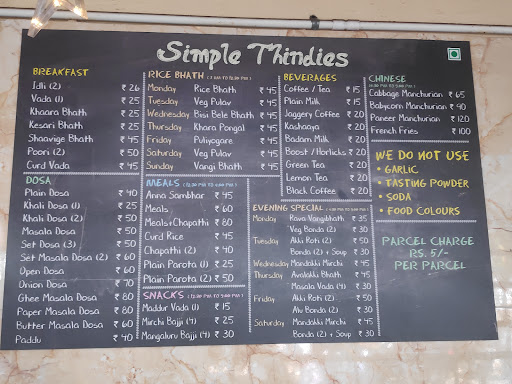 Simple Thindies
BREAKFAST
Idli (2) ₹ 26
Vada (1) ₹ 25
Khaara Bhath ₹ 25
Kesari Bhath ₹ 25
Shaavige Bhath ₹ 45
Poori (2) ₹ 50
Curd Vada ₹ 45
DOSA
Plain Dosa ₹ 40
Khali Dosa (1) ₹ 25
Khali Dosa (2) ₹ 50
Masala Dosa ₹ 50
Set Dosa (3) ₹ 50
Set Masala Dosa (2) ₹ 60
Open Dosa ₹ 60
Onion Dosa ₹ 70
Ghee Masala Dosa ₹ 80
Paper Masala Dosa ₹ 80
Butter Masala Dosa ₹ 60
Paddu ₹ 40
RICE BHATH
Monday Rice Bhath ₹ 45
Tuesday Veg Pulav ₹ 45
Wednesday Bisi Bele Bhath ₹ 45
Thursday Khara Pongal ₹ 45
Friday Puliyogare ₹ 45
Saturday Veg Pulav ₹ 45
Sunday Vangi Bhath ₹ 45
MEALS
Anna Sambhar ₹ 45
Meals ₹ 60
Meals+Chapathi ₹ 80
Curd Rice ₹ 45
Chapathi (2) ₹ 40
Plain Parota (1) ₹ 25
Plain Parota (2) ₹ 50
SNACKS
Maddur Vada (1) ₹ 15
Mirchi Bajji (4) ₹ 25
Mangaluru Bajji (4) ₹ 30
BEVERAGES
Coffee / Tea ₹ 15
Plain Milk ₹ 15
Jaggery Coffee ₹ 20
Kashaaya ₹ 20
Badam Milk ₹ 20
Boost / Horlicks ₹ 20
Green Tea ₹ 20
Lemon Tea ₹ 20
Black Coffee ₹ 20
EVENING SPECIAL
Monday Rava Vangibhath ₹ 35
Veg Bonda (2) ₹ 30
Tuesday Akki Roti (2) ₹ 50
Bonda (2) + Soup ₹ 30
Wednesday Mandakki Mirchi ₹ 45
Thursday Avalakki Bhath ₹ 45
Masala Vada (4) ₹ 30
Friday Akki Roti (2) ₹ 50
Alu Bonda (2) ₹ 30
Saturday Mandakki Mirchi ₹ 45
Bonda (2) + Soup ₹ 30
CHINESE
Cabbage Manchurian ₹ 65
Babycorn Manchurian ₹ 90
Paneer Manchurian ₹ 120
French Fries ₹ 100
WE DO NOT USE
• GARLIC
• TASTING POWDER
• SODA
• FOOD COLOURS
PARCEL CHARGE
RS. 5/-
PER PARCEL